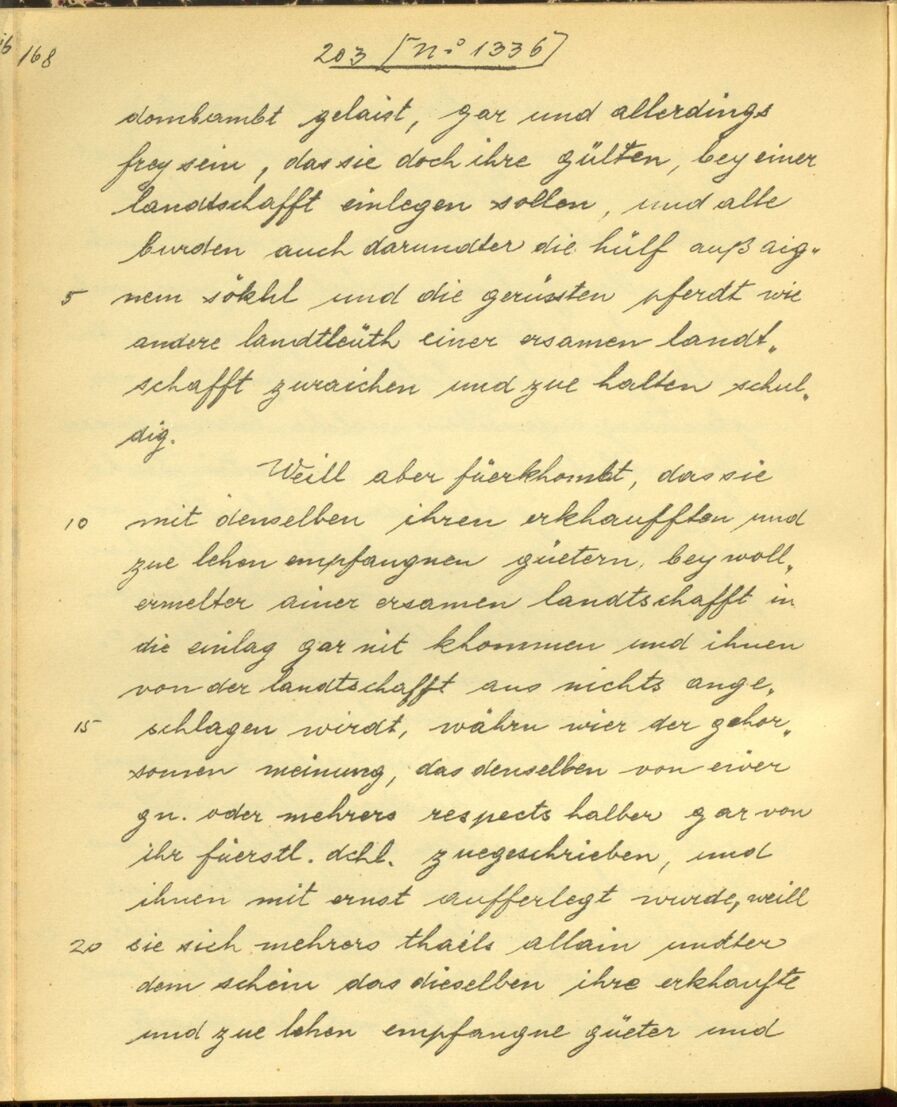 168
203 [No 1336]
dombambt gelaist, gar und allerdings
frey sein, das sie doch ihre gülten, bey einer
landtschafft einlegen sollen, und alle
burden auch darundter die hülf auß aig„
5 nem sökhl und die gerüssten pferdt wie
andere landtleüth einer ersamen landt„
schafft zuraichen und zue halten schul„
dig.
Weill aber füerkhombt, das sie
10 mit denselben ihren erkhaufften und
zue lehen empfangnen güetern, bey woll„
ermelter ainer ersamen landtschafft in
die einlag gar nit khommen und ihnen
von der landtschafft aus nichts ange„
15 schlagen wirdt, währn wier der gehor„
somen meinung, das denselben von eiver
gn. oder mehrers respects halber gar von
ihr füerstl. dchl. zuegeschrieben, und
ihnen mit ernst aufferlegt wurde, weill
20 sie sich mehrers thails allain undter
dem schein das dieselben ihre erkhaufte
und zue lehen empfangne güeter und